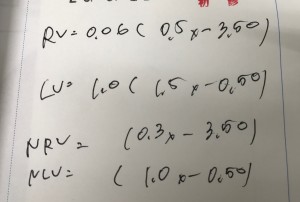 RV= 0.06 ( 0.5 x - 3.50)
LV= 1.0 ( 1.5 x - 0.50)
NRV= (0.3x - 3.50)
NLV= ( 1.0 x - 0.50)